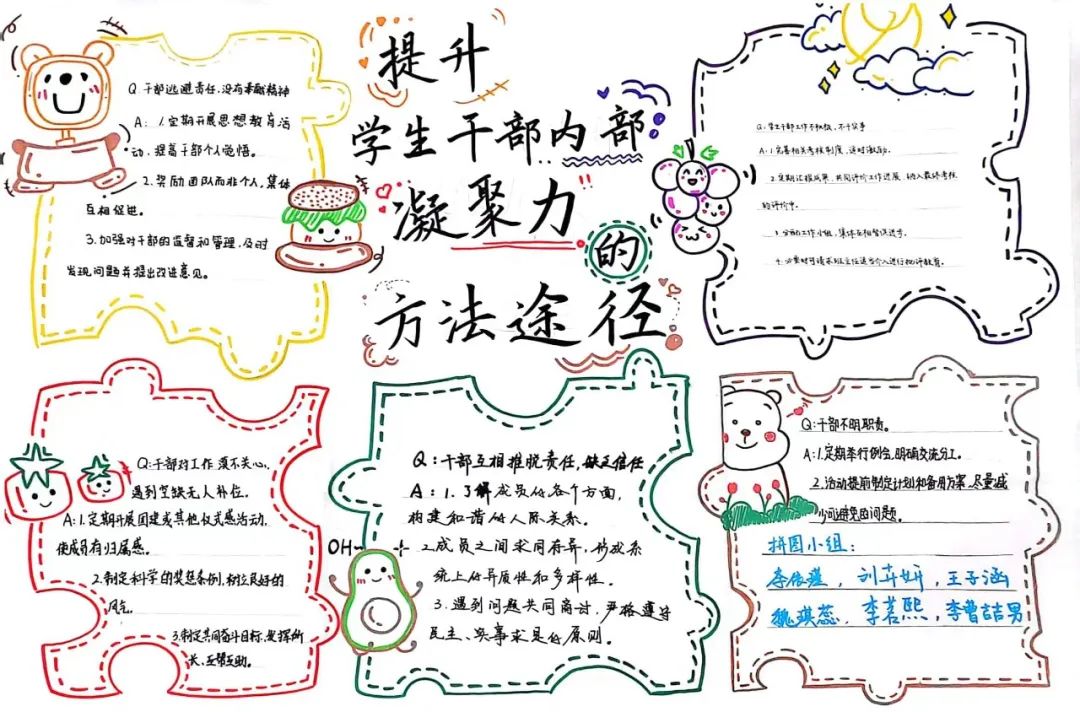 提升
学生干部内部
凝聚力
的
方法途径
Q.干部逃避责任,没有奉献精神
A:1.定期开展思想教育活
动,提高干部个人觉悟。
2.奖励团队而非个人,集体
互相促进。
3.加强对干部的监督和管理,及时
发现问题并提出改进意见。
Q:学生干部工作不积极,不干实事
A:1.完善相关考核制度,适时激励。
2.定期汇报成果,共同评价工作进展,纳入最终考核
的评价中。
3.分配工作小组,集体互相督促进步。
4.必要时可请求班主任适当介入进行批评教育。
Q:干部对工作漠不关心,
遇到空缺无人补位。
A:1.定期开展团建或其他仪式感活动,
使成员有归属感。
2.制定科学的奖惩条例,树立良好的
风气。
3.制定共同奋斗目标,发挥所
长,互帮互助。
OH~
Q:干部互相推脱责任,缺乏信任
A:1.了解成员的各个方面,
构建和谐的人际关系。
2.成员之间求同存异,形成系
统上的异质性和多样性。
3.遇到问题共同商讨,严格遵守
民主、实事求是的原则。
Q:干部不明职责。
A:1.定期举行例会,明确交流分工。
2.活动提前制定计划和备用方案,尽量减
少可避免的问题。
拼图小组:
李依璇,刘卉妍,王子涵
魏琪蕊,李茗熙,李曹喆男